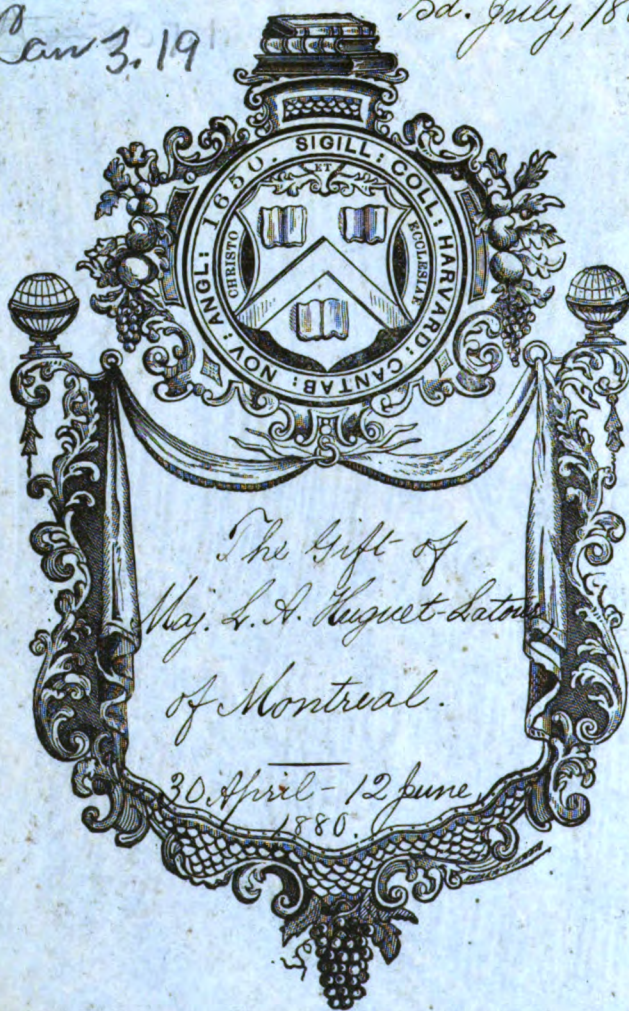 Can 3.19
Bd. July, 18
SIGILL: COLL: HARVARD: CANTAB: NOV: ANGL: 1650.
CHRISTO ET ECCLESIAE
The Gift of
Maj. L. A. Huguet-Latour
of Montreal.
30 April - 12 June,
1880.